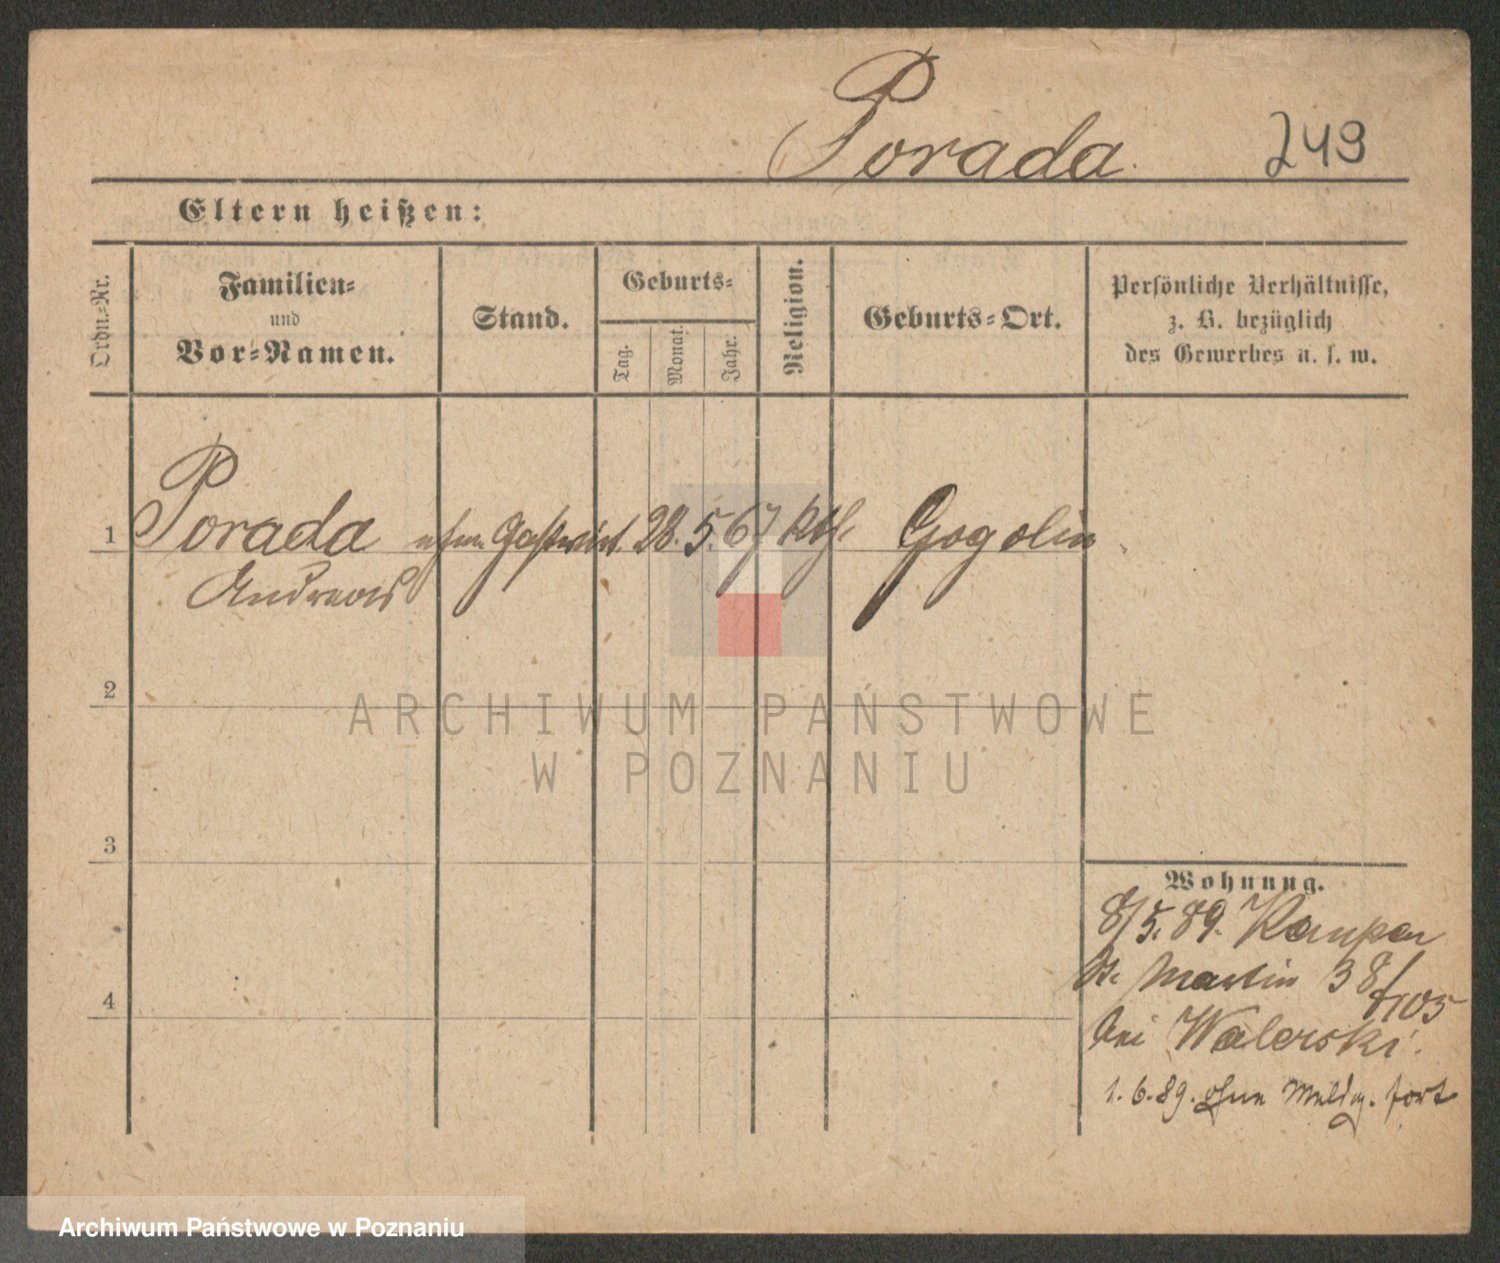 Porada 249
Eltern heißen:
Ordn.-Nr.
Familien-
und
Vor-Namen.
Stand.
Geburts-
Tag.
Monat.
Jahr.
Religion.
Geburts-Ort.
Persönliche Verhältnisse,
z. B. bezüglich
des Gewerbes u. s. w.
1 Porada Gastwirt 28. 5. 67 Kth. Gogolin
Andreas
2
ARCHIWUM PAŃSTWOWE
W POZNANIU
3
Wohnung.
8/5. 89.
St. Martin 38/
bei Walerski.
4
1. 6. 89. ohne Meldg. fort
Archiwum Państwowe w Poznaniu